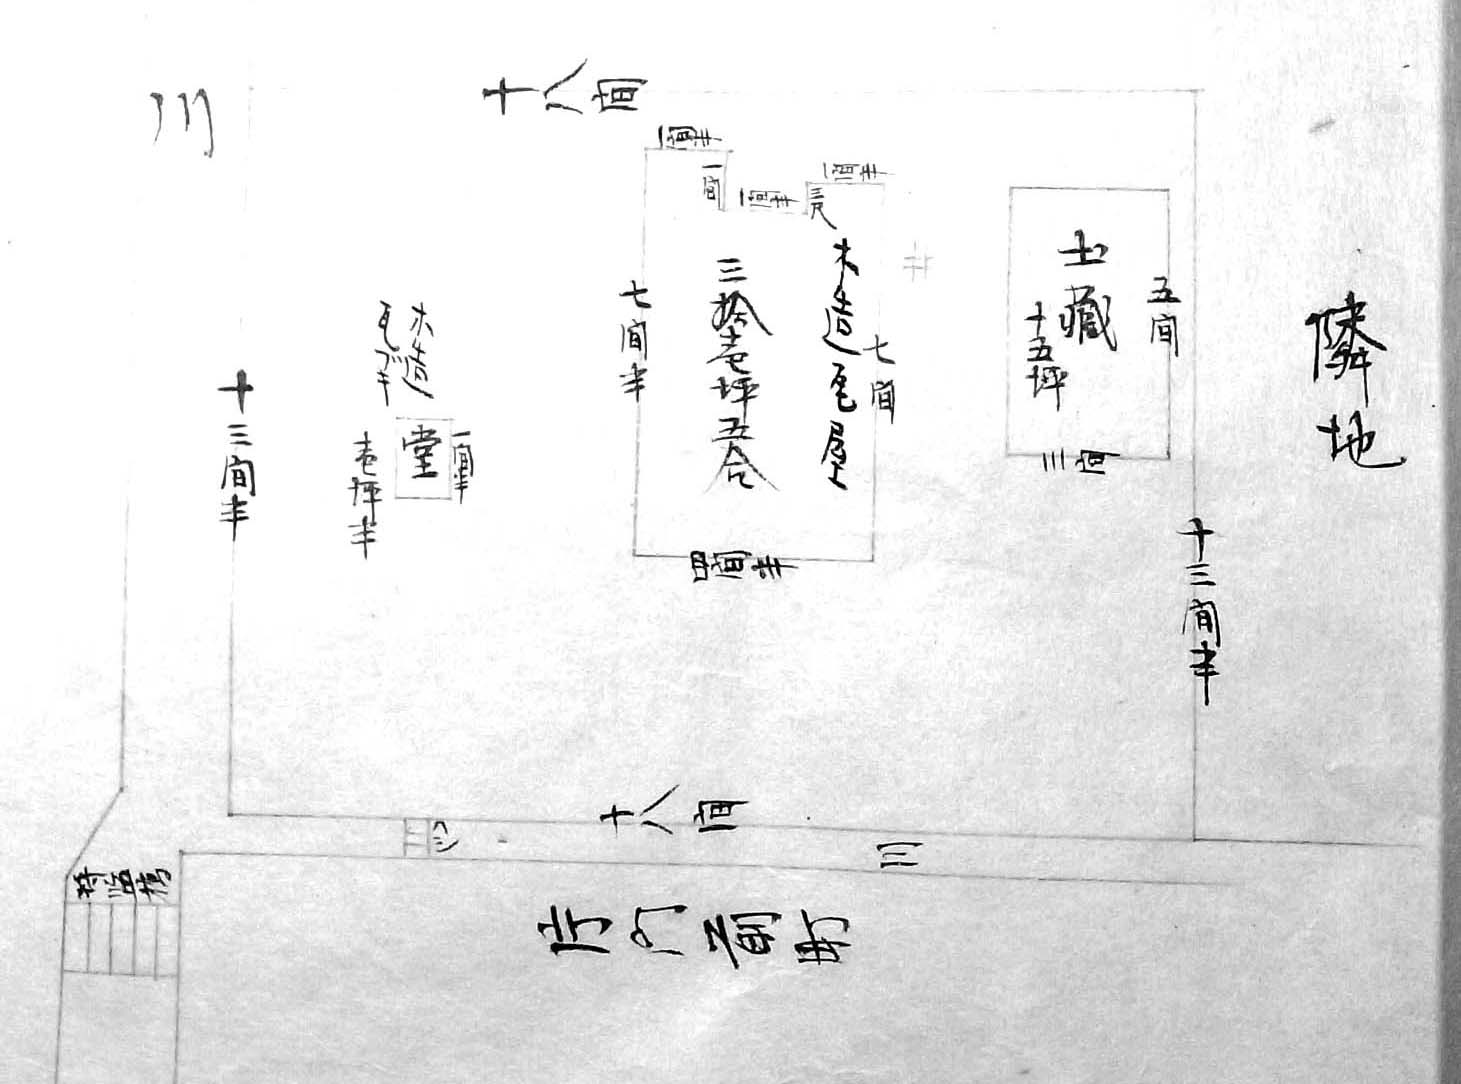 川
十八間
一間半
一間
一間半
三尺
一間半
隣地
土藏
十五坪
五間
三間
木造瓦屋
三拾壱坪五合
七間半
七間
四間半
木造
瓦ブキ
堂
一間半
壱坪半
十三間半
十三間半
十八間
川